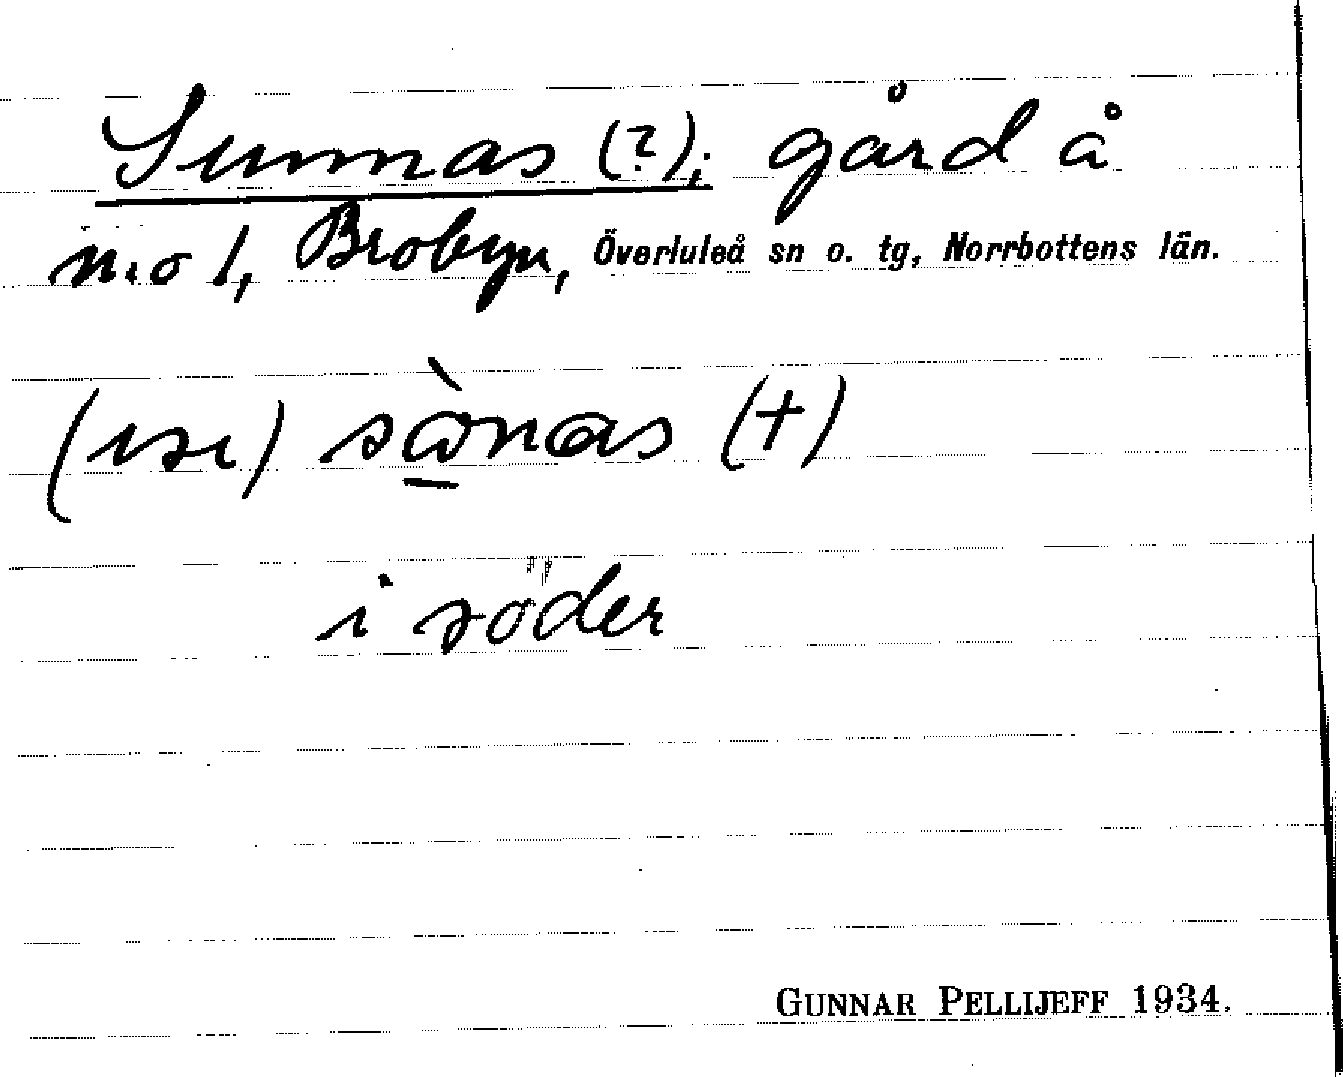 Sunnas (?); gård å
n:o 1, Brobyn, Överluleå sn o. tg, Norrbottens län.
(ısı) sὼnas (+)
i söder
GUNNAR PELLIJEFF 1934.